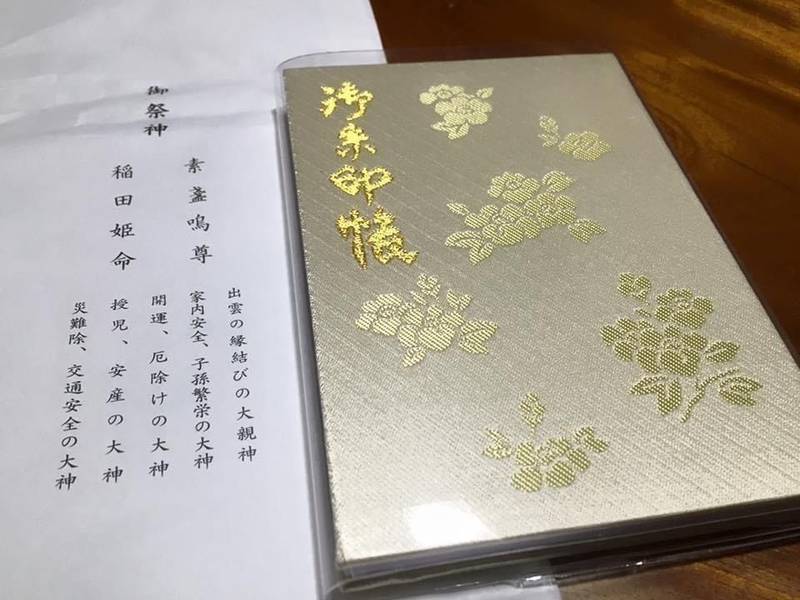 御祭神
素盞嗚尊
稲田姫命
出雲の縁結びの大親神
家内安全、子孫繁栄の大神
開運、厄除けの大神
授児、安産の大神
災難除、交通安全の大神
御朱印帳